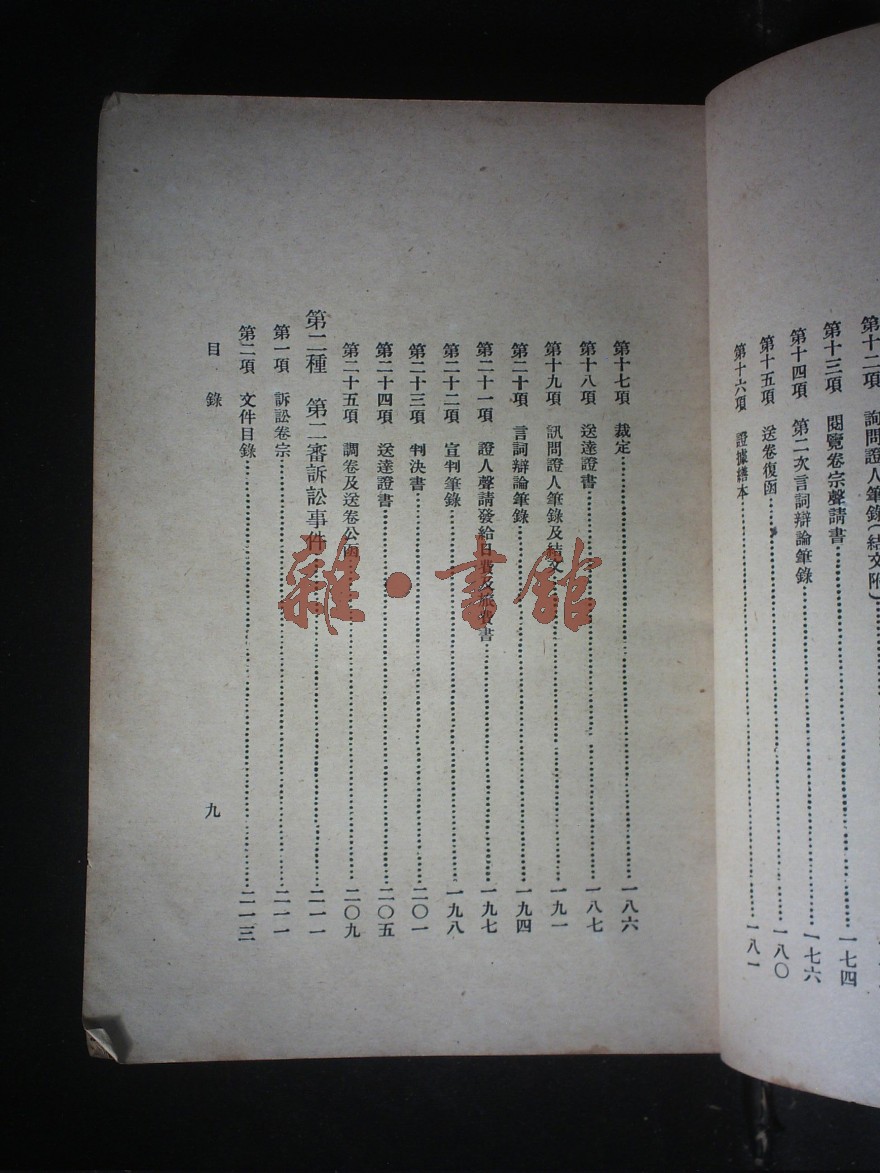 第十二項 詢問證人筆錄(結文附)
第十三項 閱覽卷宗聲請書 一七四
第十四項 第二次言詞辯論筆錄 一七六
第十五項 送卷復函 一八〇
第十六項 證據繕本 一八一
第十七項 裁定 一八六
第十八項 送達證書 一八七
第十九項 訊問證人筆錄及結文 一九一
第二十項 言詞辯論筆錄 一九四
第二十一項 證人聲請發給日費及旅費書 一九七
第二十二項 宣判筆錄 一九八
第二十三項 判決書 二〇一
第二十四項 送達證書 二〇五
第二十五項 調卷及送卷公函 二〇九
第二種 第二審訴訟事件 二一一
第一項 訴訟卷宗 二一一
第二項 文件目錄 二一三
目錄 九
雜·書館